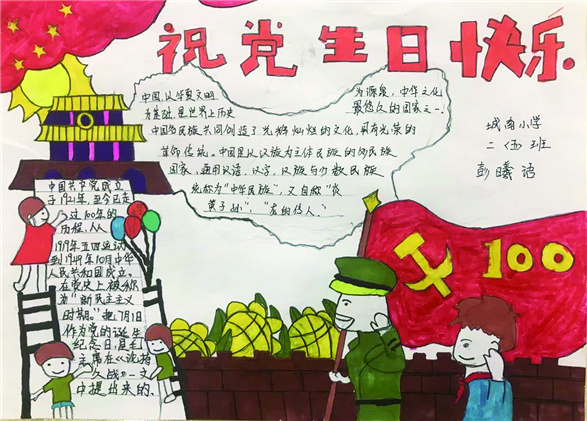 祝党生日快乐
中国，以华夏文明
为源泉，中华文化
为基础，是世界上历史
最悠久的国家之一，
中国各民族共同创造了光辉灿烂的文化，具有光荣的
革命传统。中国是以汉族为主体民族的多民族
国家，通用汉语、汉字，汉族与少数民族
统称为“中华民族”，又自称“炎
黄子孙”，“龙的传人”。
城南小学
二（五）班
彭曦语
中国共产党成立
于1921年，至今已走
过100年的
历程，从
1919年五四运动
到1949年10月中华
人民共和国成立，
在党史上被称
为“新民主主义
时期。”把7月1日
作为党的诞生
纪念日，是毛
主席在《论持
久战》一文
中提出来的。
100